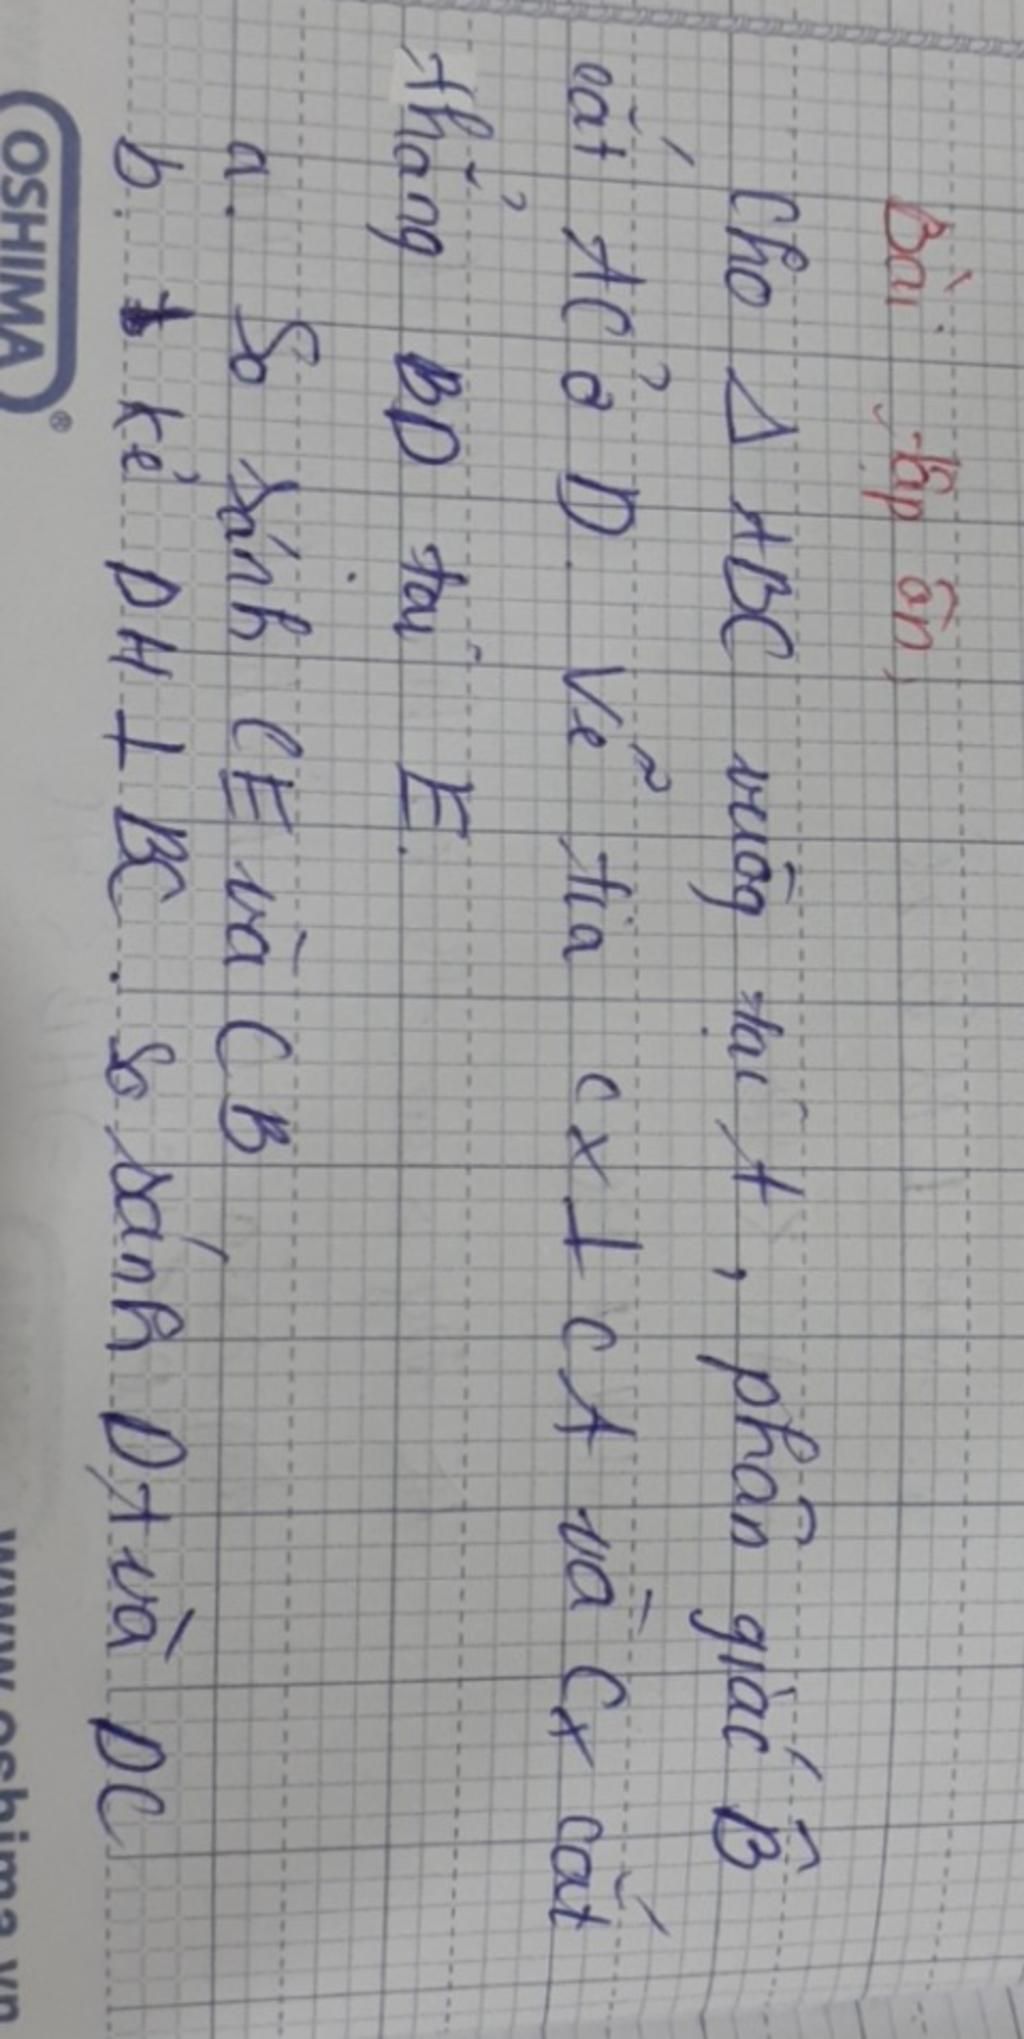 Bài tập ôn
Cho Δ ABC vuôg tại A, phân giác B̂
cắt AC ở D. Vẽ tia Cx ⊥ CA và Cx cắt
thẳng BD tại E.
a. So sánh CE và CB
b. kẻ DH ⊥ BC. So sánh DA và DC
OSHIMA®
www.oshima.vn